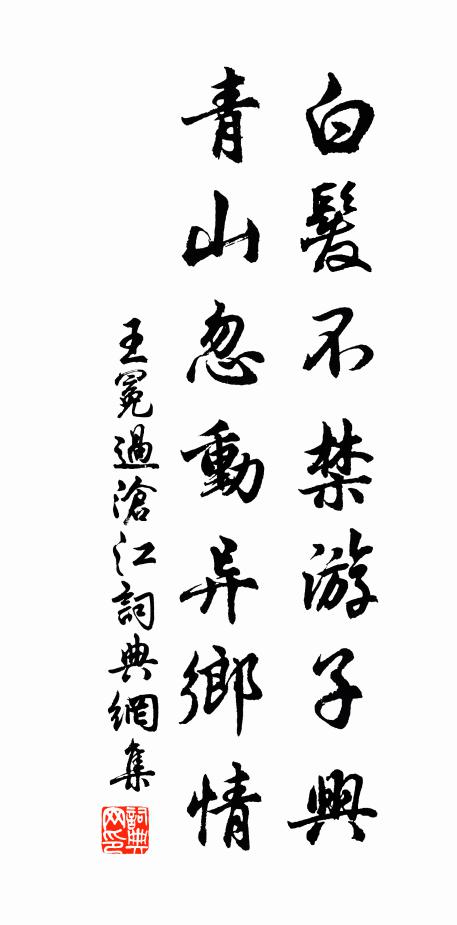 白髮不禁游子興
青山忽動异鄉情
王冕過滄江詞典網集
詞典网印